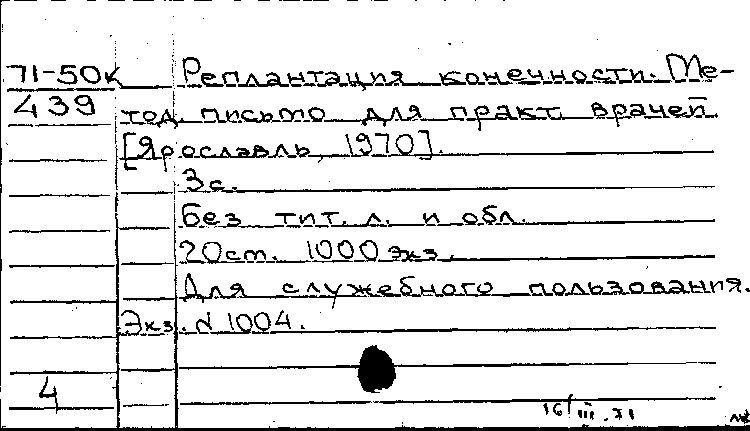 71-50к Реплантация конечности. Ме-
439 тод. письмо для практ. врачей.
[Ярославль, 1970].
3с.
Без тит. л. и обл.
20см. 1000 экз.
Для служебного пользования.
Экз. N 1004.
4
16/III.71